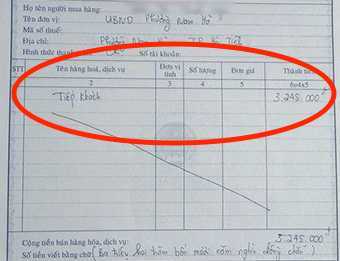 Họ tên người mua hàng:
Tên đơn vị: UBND Phường Nam Hà
Mã số thuế:
Địa chỉ: Phường Nam Hà T.P Hà Tĩnh
Hình thức thanh Số tài khoản:
STT Tên hàng hoá, dịch vụ Đơn vị tính Số lượng Đơn giá Thành tiền
2 3 4 5 6=4x5
Tiếp khách 3.245.000đ
Cộng tiền bán hàng hóa, dịch vụ: 3.245.000đ
Số tiền viết bằng chữ: (Ba triệu hai trăm bốn mươi năm nghìn đồng chẵn)